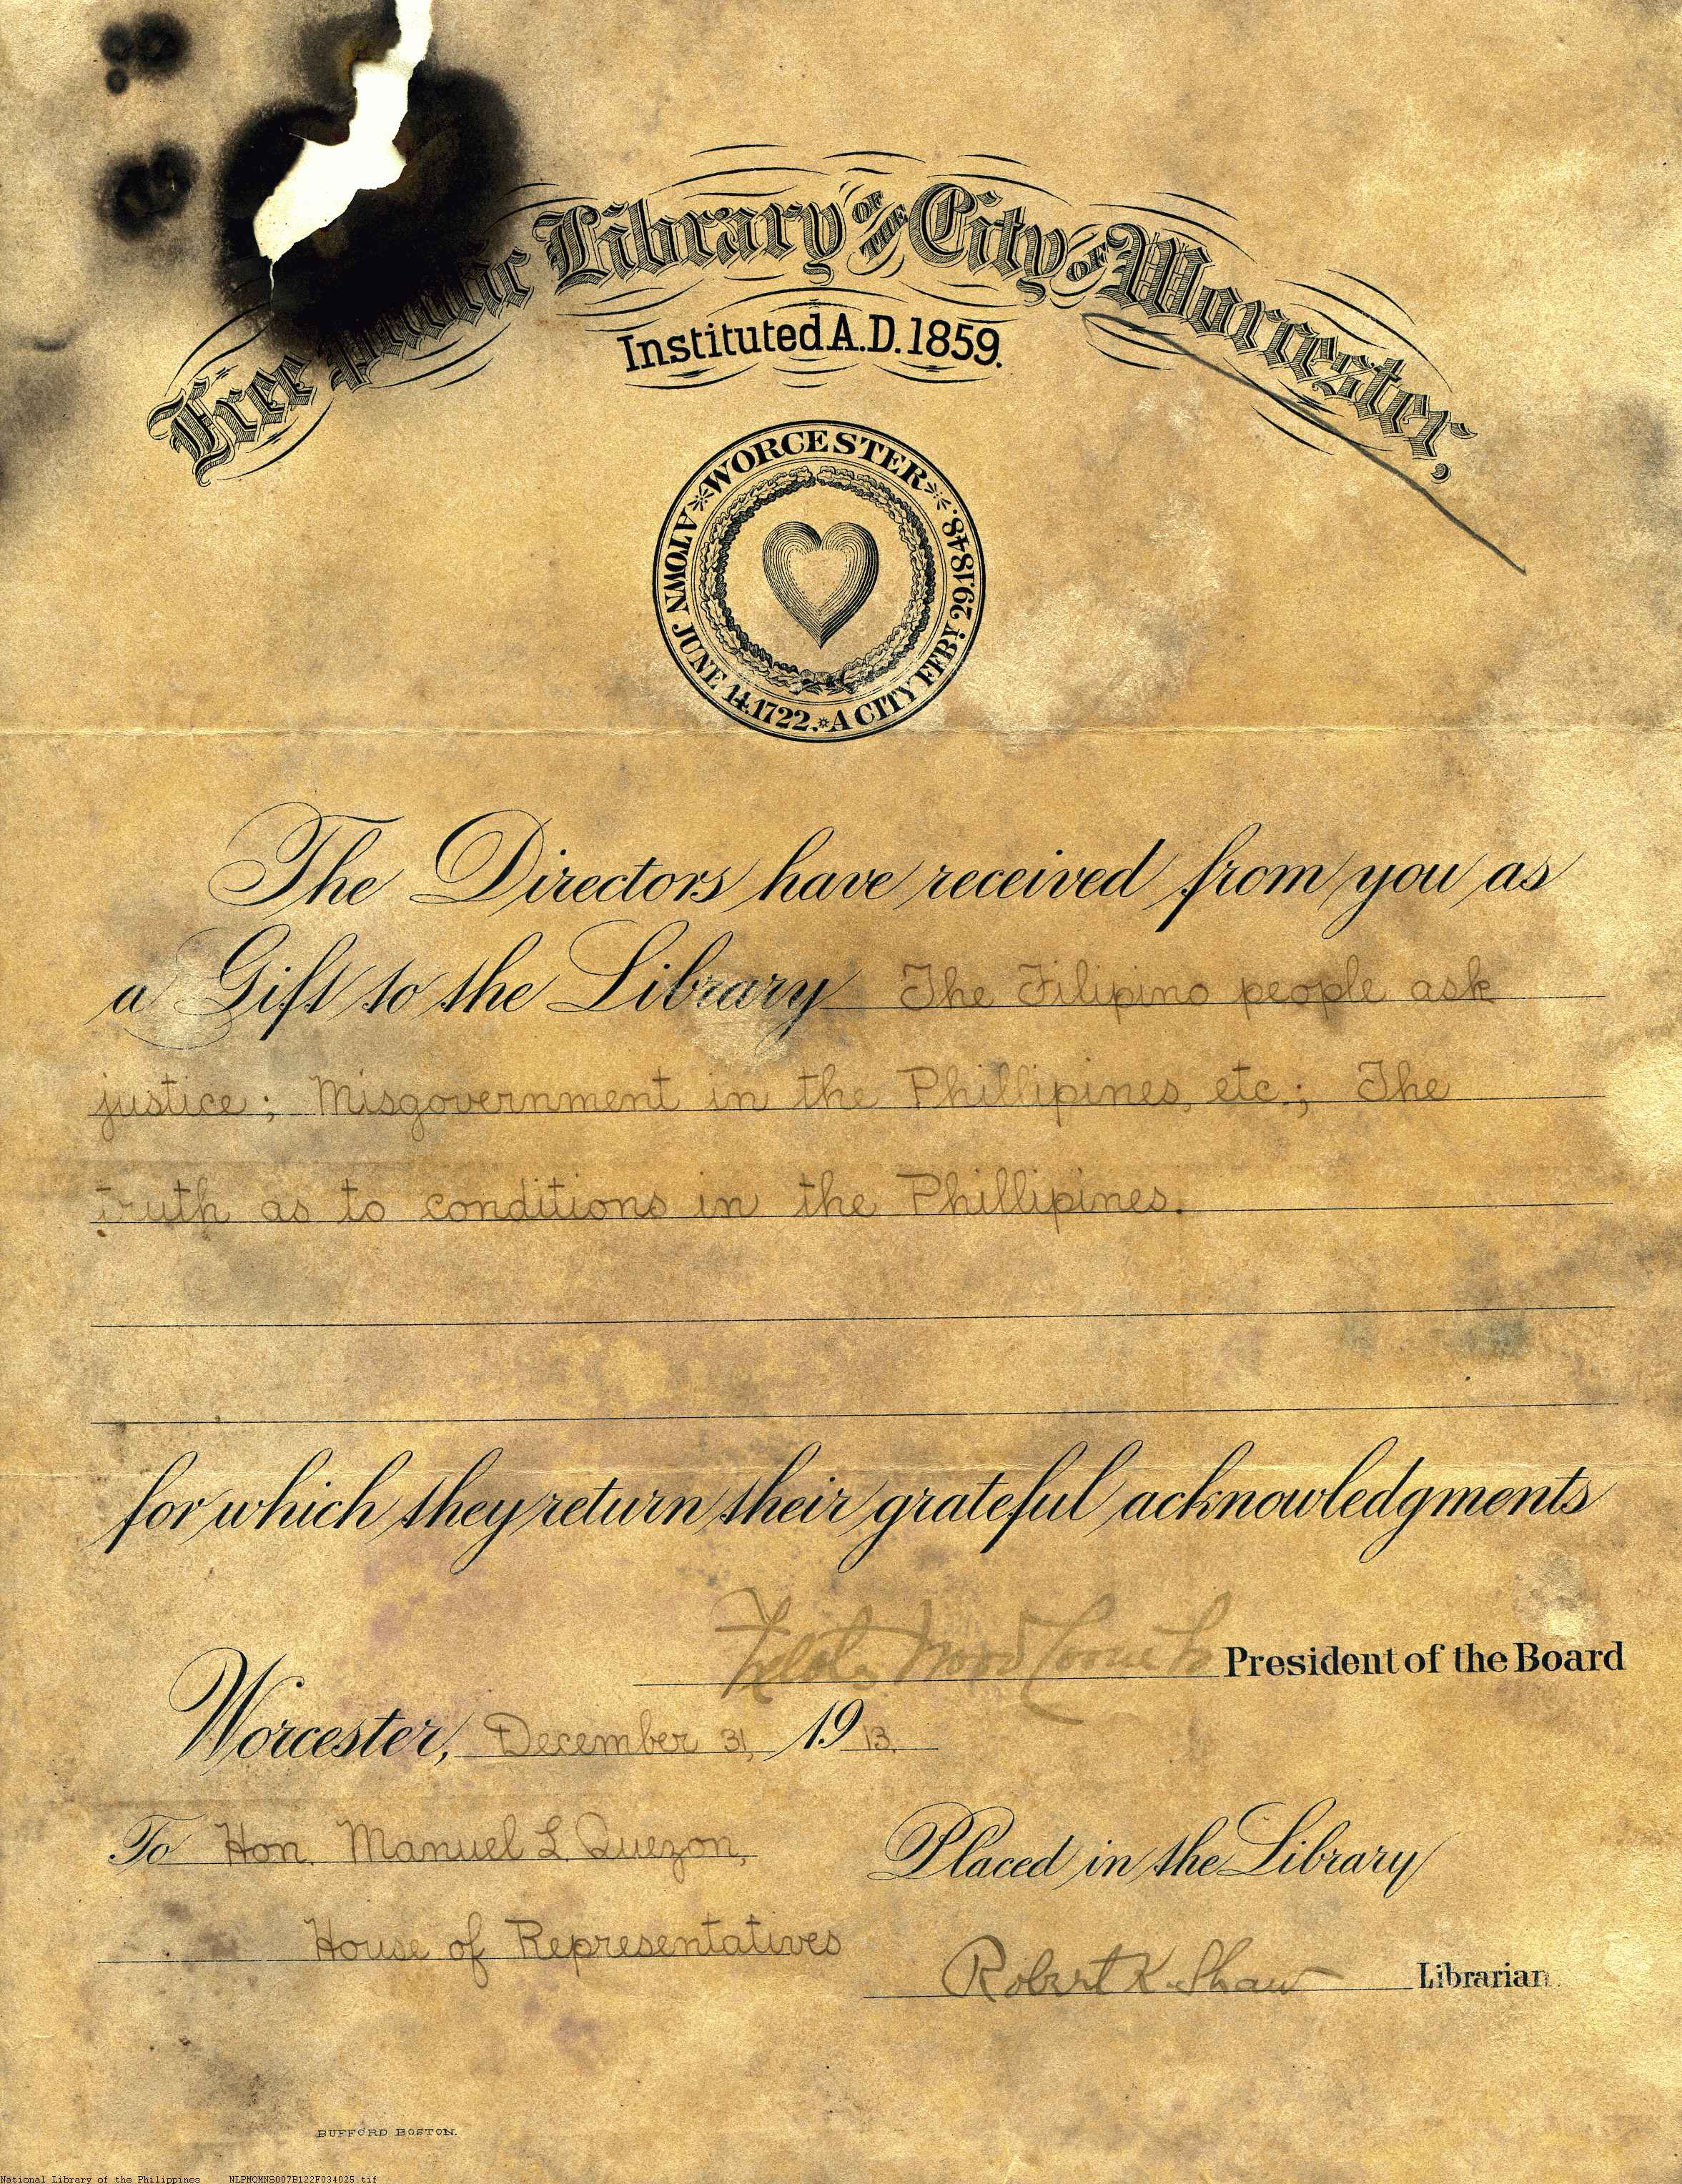 Free Public Library OF THE City OF Worcester,
Instituted A.D. 1859.
WORCESTER
A TOWN JUNE 14.1722. A CITY FEBY. 29.1848.
The Directors have received from you as
a Gift to the Library The Filipino people ask
justice; Misgovernment in the Phillipines, etc.; The
truth as to conditions in the Phillipines.
for which they return their grateful acknowledgments
President of the Board
Worcester, December 31, 1913.
To Hon. Manuel L. Quezon,
House of Representatives
Placed in the Library
Robert K. Shaw Librarian.
BUFFORD BOSTON.
National Library of the Philippines NLPMQMNS007B122F034025.tif